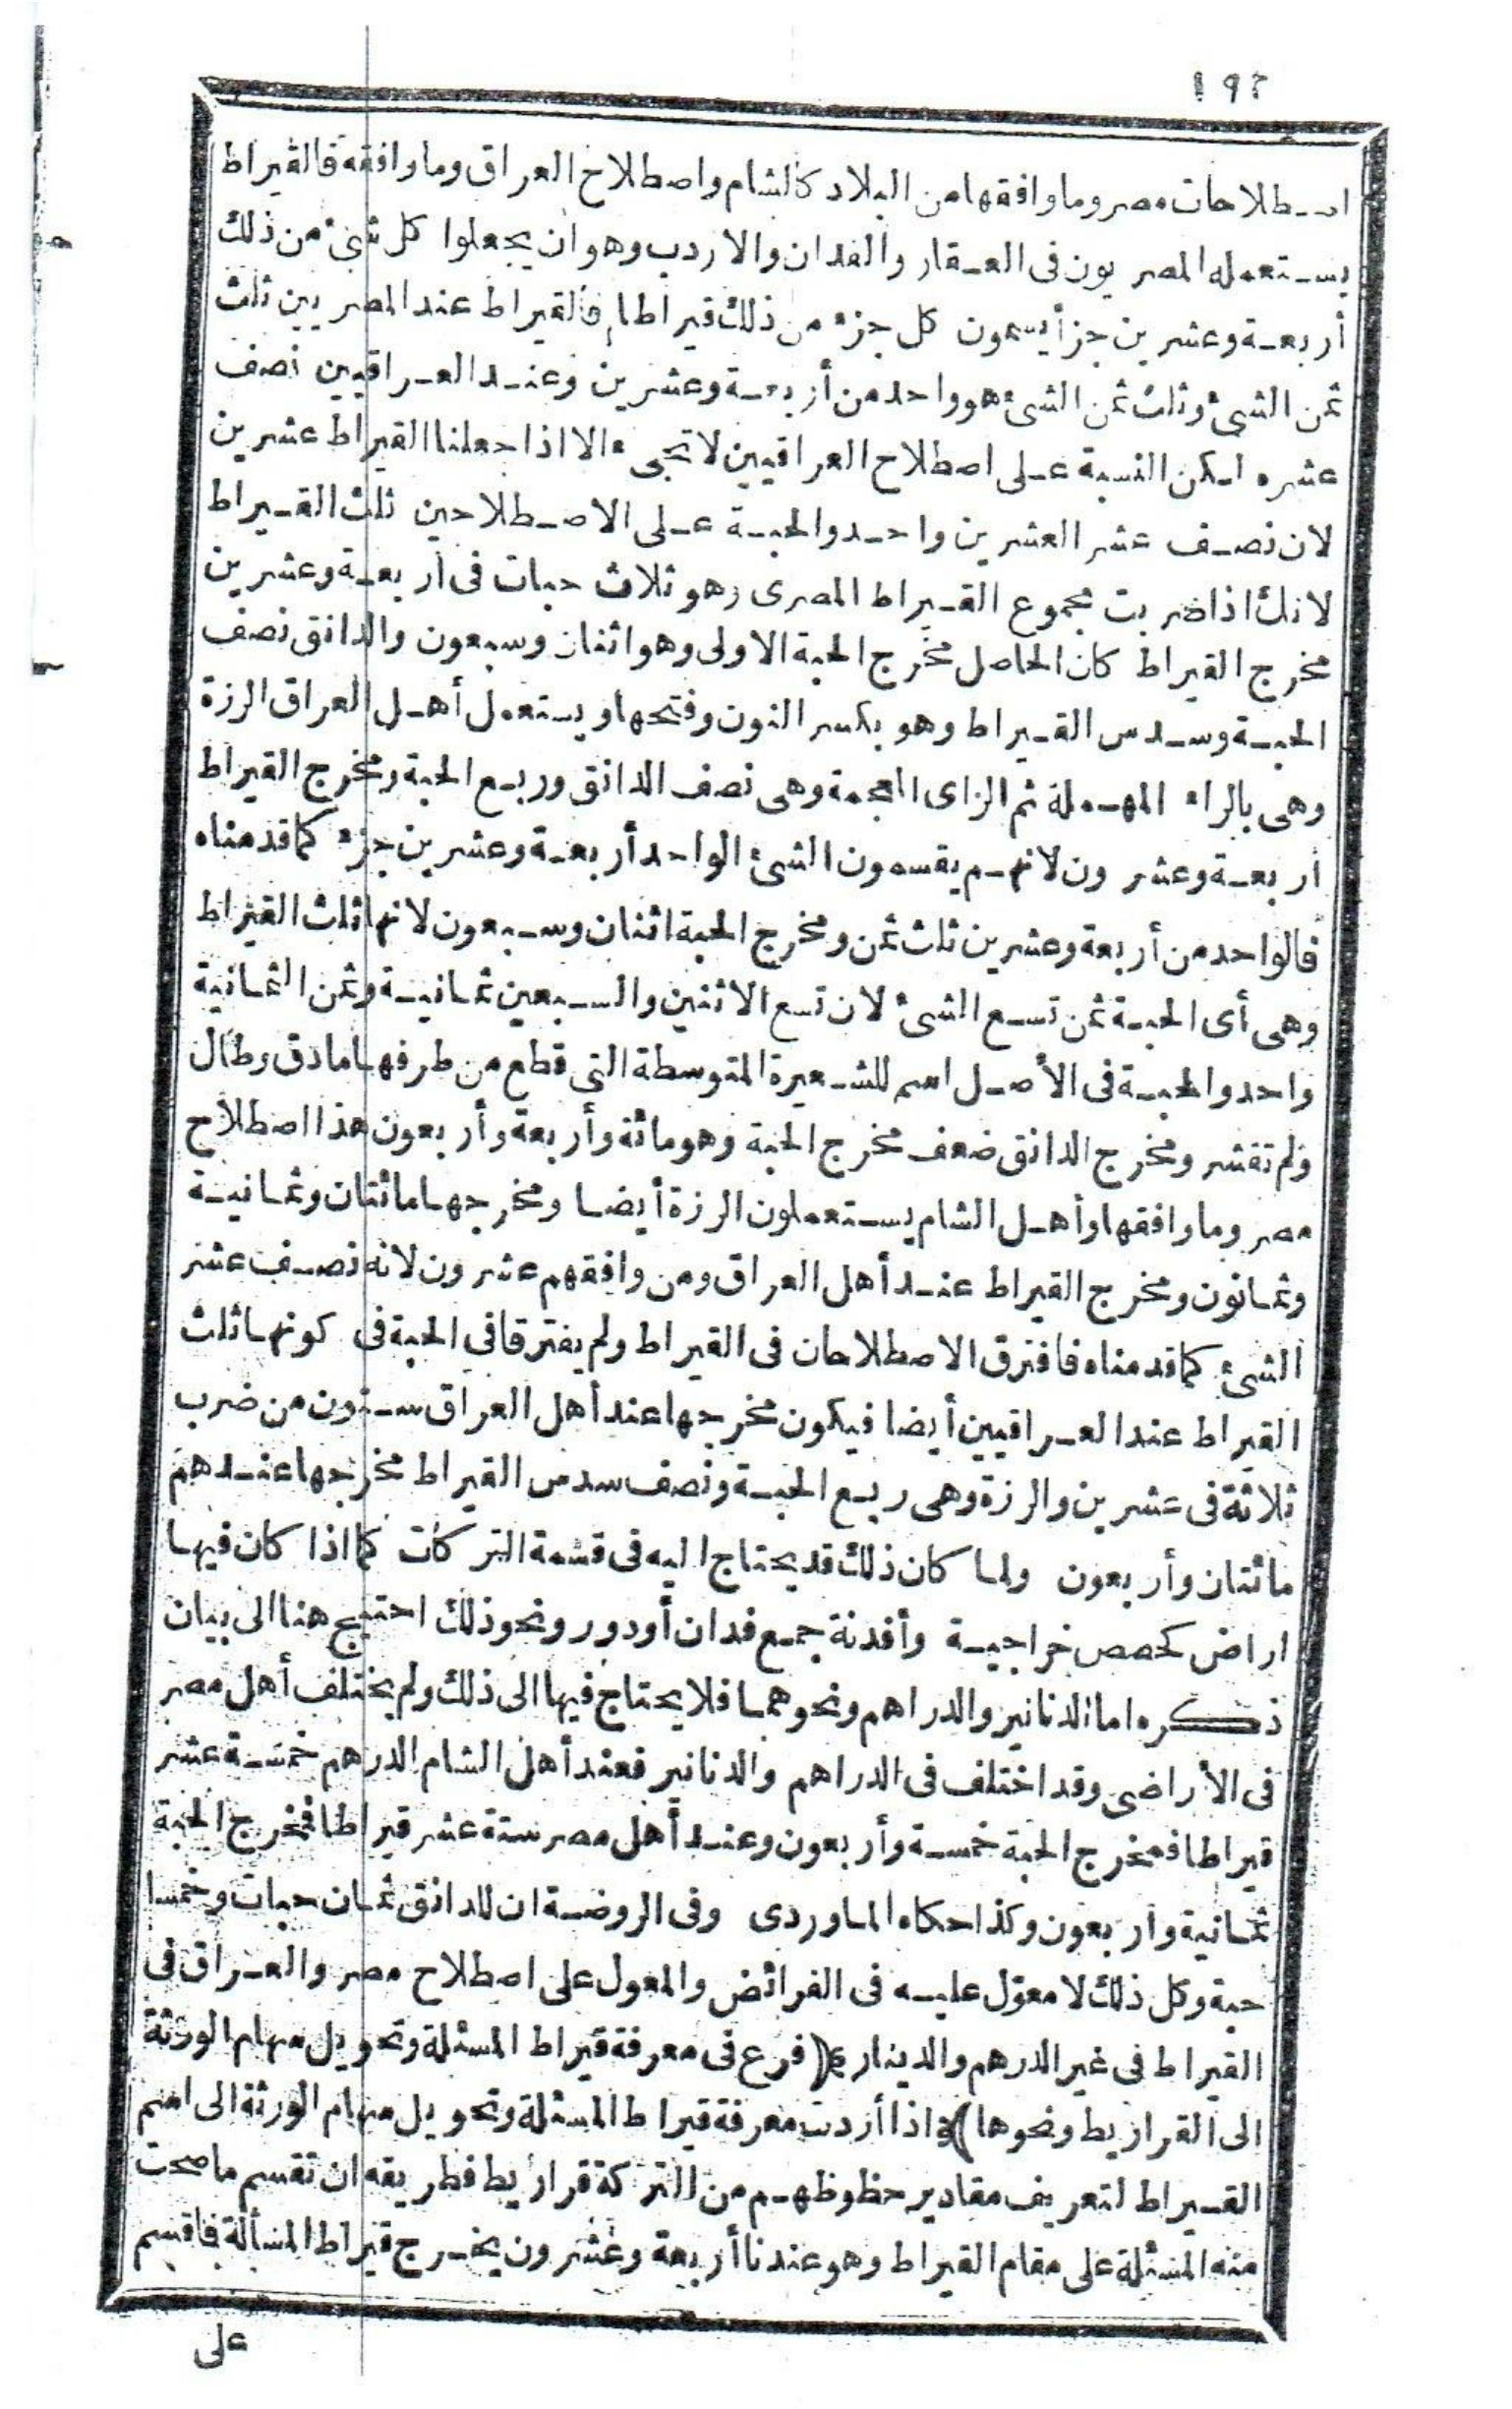 ١٩٢
اصطلاحات مصر وما وافقها من البلاد كالشام واصطلاح العراق وما وافقه فالقيراط
يستعمله المصريون فى العقار والفدان والاردب وهو أن يجعلوا كل شئ من ذلك
أربعة وعشرين جزأ يسمون كل جزء من ذلك قيراطا فالقيراط عند المصريين ثلث
ثمن الشئ وثلث ثمن الشئ هو واحد من أربعة وعشرين وعند العراقيين نصف
عشره لكن النسبة على اصطلاح العراقيين لا تجىء الا اذا جعلنا القيراط عشرين
لان نصف عشر العشرين واحد والحبة على الاصطلاحين ثلث القيراط
لانك اذا ضربت مجموع القيراط المصرى وهو ثلاث حبات فى أربعة وعشرين
مخرج القيراط كان الحاصل مخرج الحبة الاولى وهو اثنان وسبعون والدانق نصف
الحبة وسدس القيراط وهو بكسر النون وفتحها ويستعمل أهل العراق الرزة
وهى بالراء المهملة ثم الزاى المعجمة وهى نصف الدانق وربع الحبة ومخرج القيراط
أربعة وعشرون لانهم يقسمون الشئ الواحد أربعة وعشرين جزء كما قدمناه
فالواحد من أربعة وعشرين ثلث ثمن ومخرج الحبة اثنان وسبعون لانها ثلث القيراط
وهى أى الحبة ثمن تسع الشئ لان تسع الاثنين والسبعين ثمانية وثمن الثمانية
واحد والحبة فى الأصل اسم للشعيرة المتوسطة التى قطع من طرفها ما دق وطال
ولم تقشر ومخرج الدانق ضعف مخرج الحبة وهو مائة وأربعة وأربعون هذا اصطلاح
مصر وما وافقها وأهل الشام يستعملون الرزة أيضا ومخرجها مائتان وثمانية
وثمانون ومخرج القيراط عند أهل العراق ومن وافقهم عشرون لانه نصف عشر
الشئ كما قدمناه فافترق الاصطلاحان فى القيراط ولم يفترقا فى الحبة فى كونها ثلث
القيراط عند العراقيين أيضا فيكون مخرجها عند أهل العراق ستون من ضرب
ثلاثة فى عشرين والرزة وهى ربع الحبة ونصف سدس القيراط مخرجها عندهم
مائتان وأربعون ولما كان ذلك قد يحتاج اليه فى قسمة التركات كما اذا كان فيها
اراض كحصص خراجية وأفدنة جمع فدان أودور ونحو ذلك احتيج هنا الى بيان
ذكره اما الدنانير والدراهم ونحوهما فلا يحتاج فيها الى ذلك ولم يختلف أهل مصر
فى الأراضى وقد اختلف فى الدراهم والدنانير فعند أهل الشام الدرهم خمسة عشر
قيراطا فمخرج الحبة خمسة وأربعون وعند أهل مصر ستة عشر قيراطا فمخرج الحبة
ثمانية وأربعون وكذا حكاه الماوردى وفى الروضة ان للدانق ثمان حبات وخمسا
حبة وكل ذلك لا معوّل عليه فى الفرائض والمعول على اصطلاح مصر والعراق فى
القيراط فى غير الدرهم والدينار (فرع فى معرفة قيراط المسئلة وتحويل سهام الورثة
الى القراريط ونحوها) اذا أردت معرفة قيراط المسئلة وتحويل سهام الورثة الى اسم
القيراط لتعريف مقادير حظوظهم من التركة قراريط فطريقه ان تقسم ما صحت
منه المسئلة على مقام القيراط وهو عندنا أربعة وعشرون يخرج قيراط المسألة فاقسم
على